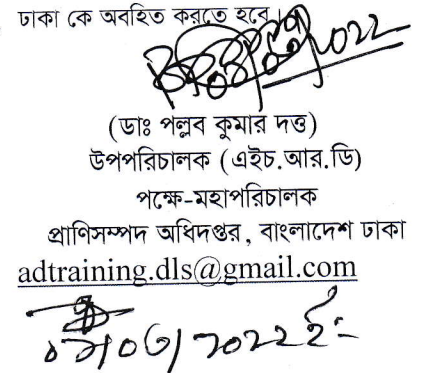 ঢাকা কে অবহিত করতে হবে।
(ডাঃ পল্লব কুমার দত্ত)
উপপরিচালক (এইচ.আর.ডি)
পক্ষে-মহাপরিচালক
প্রাণিসম্পদ অধিদপ্তর, বাংলাদেশ ঢাকা
adtraining.dls@gmail.com